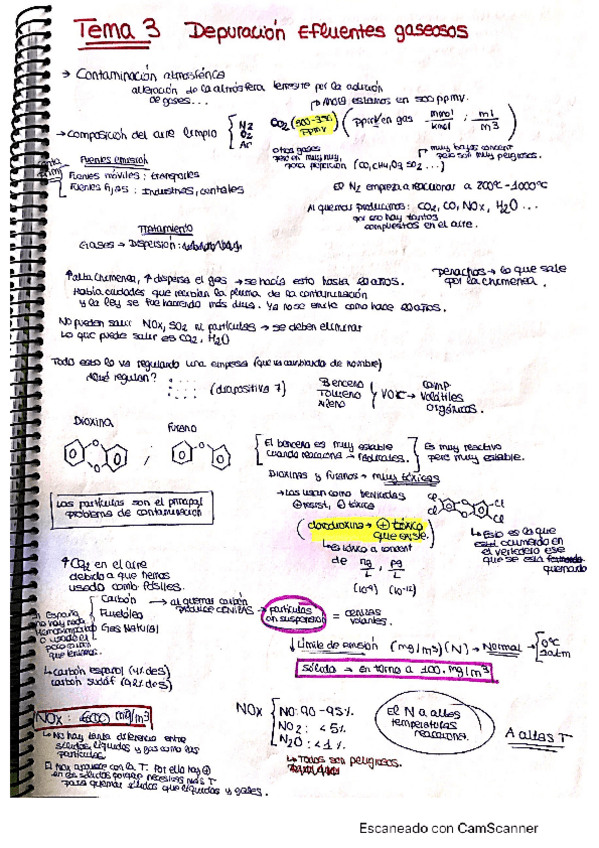 Tema 3 Depuración Efluentes gaseosos
→ Contaminación atmosférica
alteración de la atmósfera terrestre por la adición
de gases...
→ Ahora estamos en 500 ppmv.
→ Composición del aire limpio { N2 O2 Ar
CO2 (300-3%) ppmv
(ppmv en gas mmol/kmol ; ml/m3)
otros gases
pero en muy muy
poca proporción (CO, CH4, O3, SO2 ...)
muy bajas concent
pero son muy peligrosos.
Fuentes emisión
Fuentes móviles: transportes
Fuentes fijas: Industrias, centrales
El N2 empieza a reaccionar a 200ºC-1000ºC
Al quemar producimos: CO2, CO, NOx, H2O ...
por eso hay tantos
compuestos en el aire.
Tratamiento
Gases → Dispersión:
↑ alta chimenea, ↑ dispersa el gas → se hacía esto hasta años.
Había ciudades que recibían la pluma de la contaminación
y la ley se fue haciendo más dura. Ya no se emite como hace años.
Penachos → lo que sale
por la chimenea.
No pueden salir NOx, SO2 ni partículas → se deben eliminar
Lo que puede salir es CO2, H2O
Todo esto lo va regulando una empresa (que va cambiando de nombre)
¿Qué regulan?
(diapositiva 7)
Benceno
Tolueno
Xileno
} VOC → comp
Volátiles
Orgánicos.
Dioxina ; Furano
[El benceno es muy estable
cuando reacciona →]
Es muy reactivo
pero muy estable.
Dioxinas y furanos → muy tóxicos
Las partículas son el principal
problema de contaminación
→ Las usan como
⊕ resist, ⊕ tóxico
Cl Cl
Cl Cl
(clorodioxina → ⊕ tóxica
que existe.)
→ es tóxico a concent
de ng/L, pg/L
(10⁻⁹) (10⁻¹²)
→ Esto es lo que
está ocurriendo en
el vertedero ese
que se está quemando
↑ CO2 en el aire
debido a que hemos
usado comb. fósiles.
Carbón → al quemar carbón
produce cenizas → partículas
en suspensión = cenizas
volantes.
Fuelóleo
Gas Natural
En España
no hay nada
que tenemos.
→ carbón español (4% de S)
carbón sudáf (0,2% de S)
↓ Límite de emisión (mg/m3)(N) → Normal → { 0ºC
1 atm
sólido → en torno a 100 mg/m3
NOx: 600 mg/m3
→ No hay tanta diferencia entre
sólidos, líquidos y gas como las
partículas.
El NOx aumenta con la T. Por ello hay ⊕
en los sólidos porque necesitas más T
para quemar sólidos que líquidos y gases.
NOx { NO: 90-95%
NO2: <5%
N2O: <1%
→ Todos son peligrosos.
El N a altas
temperaturas
reacciona.
A altas T
Escaneado con CamScanner